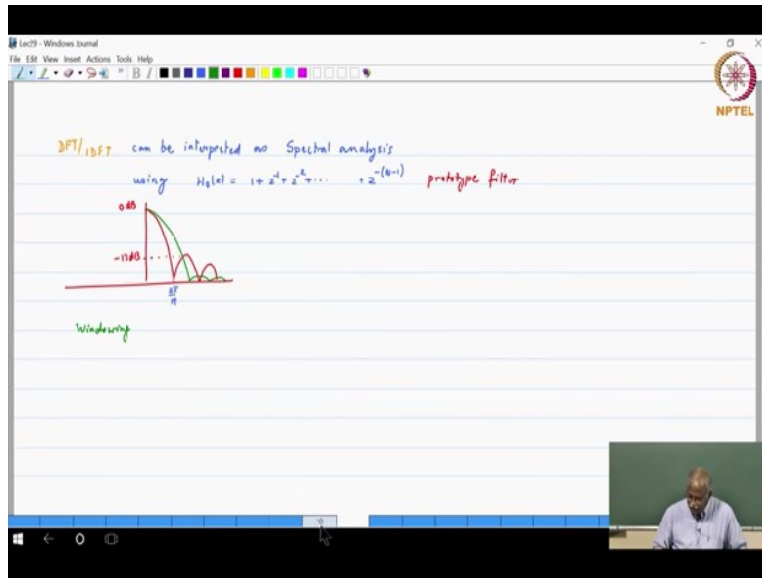 Lec29 - Windows Journal
File Edit View Insert Actions Tools Help
NPTEL
DFT/IDFT can be interpreted as Spectral analysis
using H₀(z) = 1 + z⁻¹ + z⁻² + ⋯ + z⁻⁽ᴹ⁻¹⁾ prototype filter
0dB
-13dB
2π
M
Windowing